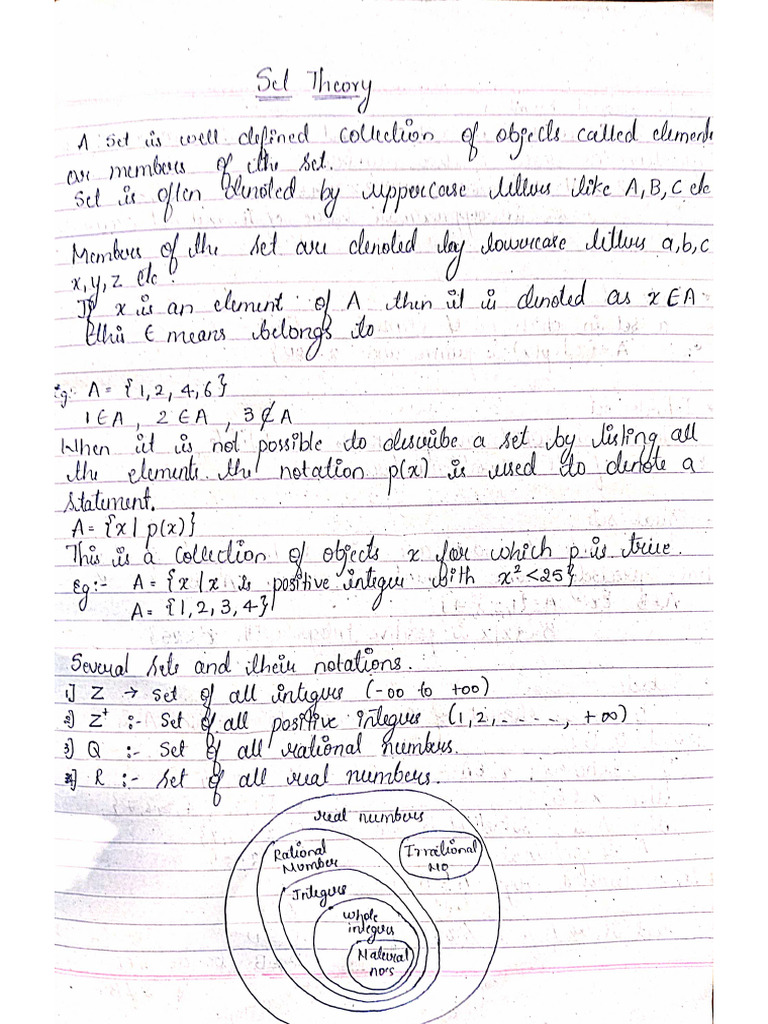 Set Theory
A set is well defined collection of objects called elements
or members of the set.
Set is often denoted by uppercase letters like A, B, C etc
Members of the set are denoted by lowercase letters a, b, c
x, y, z etc.
If x is an element of A then it is denoted as x ∈ A
this ∈ means belongs to
Eg:- A = {1, 2, 4, 6}
1 ∈ A , 2 ∈ A , 3 ∉ A
When it is not possible to describe a set by listing all
the elements. the notation p(x) is used to denote a
statement.
A = {x | p(x)}
This is a collection of objects x for which p is true.
Eg:- A = {x | x is positive integer with x² < 25}
A = {1, 2, 3, 4}
Several sets and their notations.
1] Z → Set of all integers (-∞ to +∞)
2] Z⁺ :- Set of all positive integers (1, 2, - - - - -, +∞)
3] Q :- Set of all rational numbers.
4] R :- Set of all real numbers.
real numbers
Rational
Number
Irrational
No
Integers
whole
integers
Natural
no's